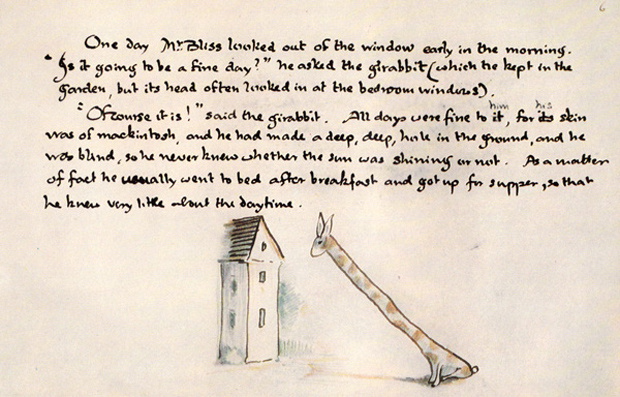 6
One day Mr. Bliss looked out of the window early in the morning.
"Is it going to be a fine day?" he asked the girabbit (which he kept in the
garden, but its head often looked in at the bedroom windows).
"Of course it is!" said the girabbit. All days were fine to it, for its skin
him his
was of mackintosh, and he had made a deep, deep, hole in the ground, and he
was blind, so he never knew whether the sun was shining or not. As a matter
of fact he usually went to bed after breakfast and got up for supper, so that
he knew very little about the daytime.